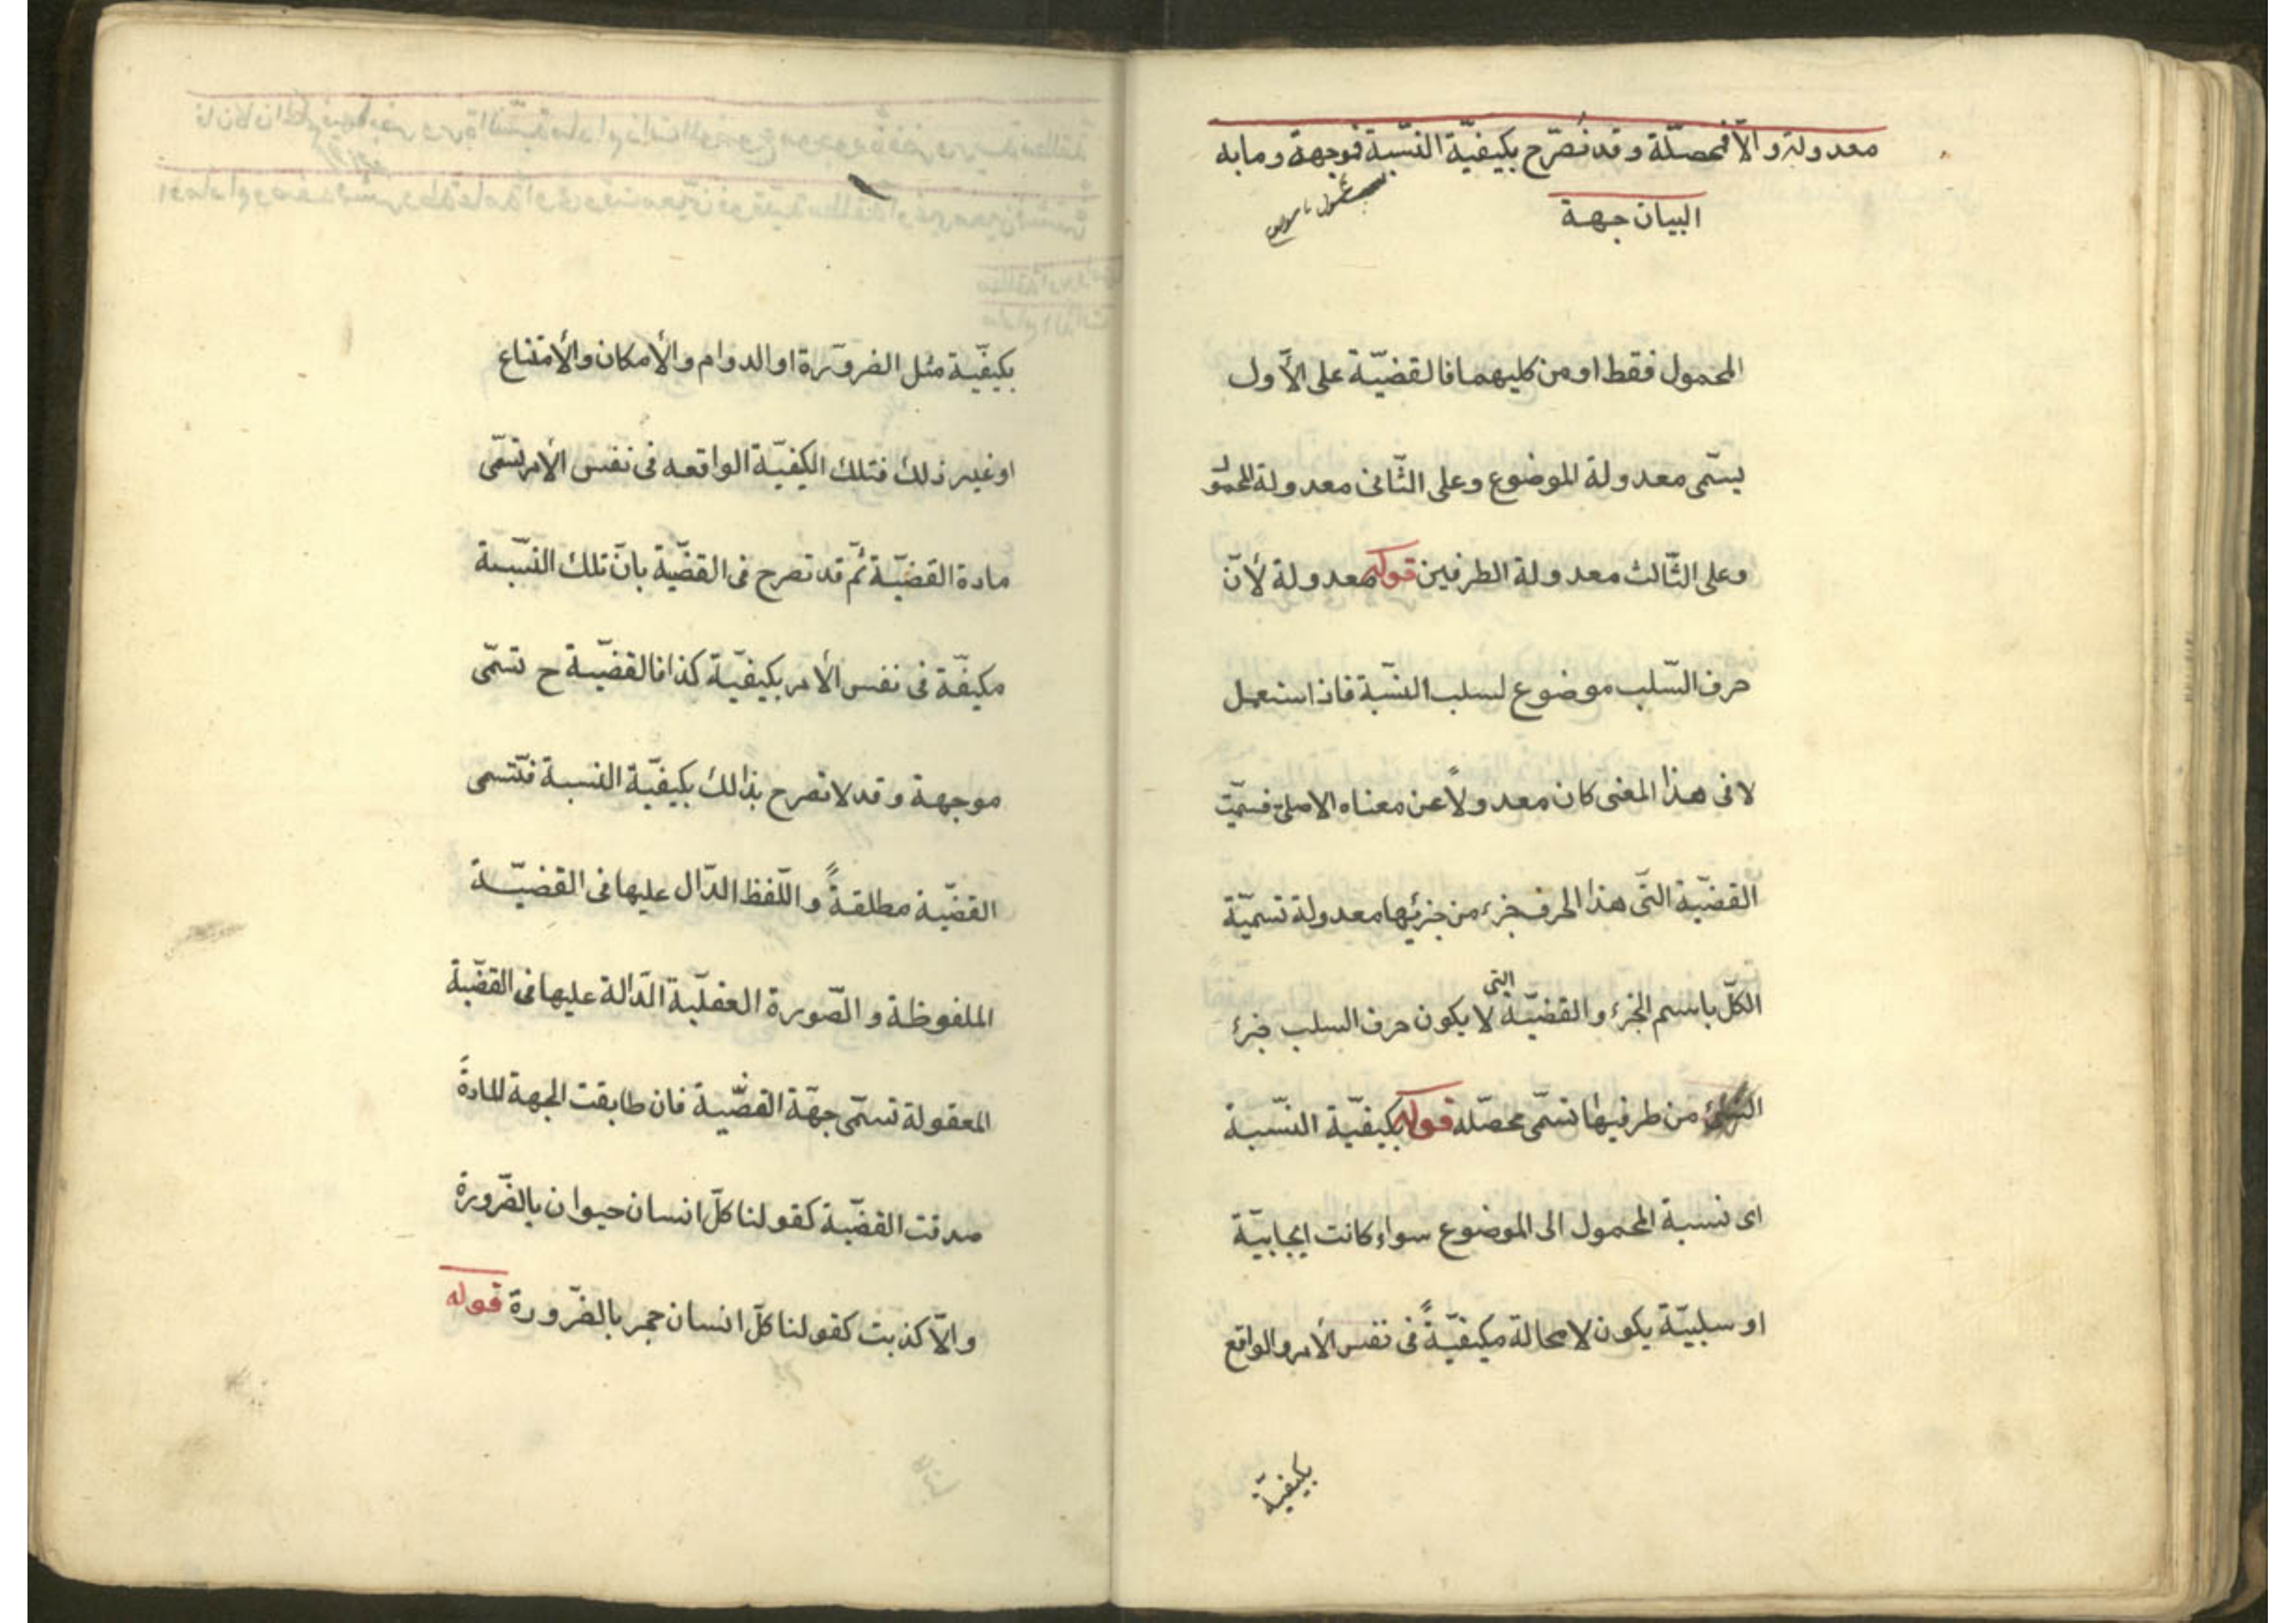 معدولة والّا فمحصّلة وقد نصّرح بكيفيّة النّسبة فوجهة وما به
البيان جهة
المحمول فقط او من كليهما فالقضيّة على الأوّل
يسمّى معدولة الموضوع وعلى الثّانى معدولة المحمول
وعلى الثّالث معدولة الطرفين قوله معدولة لأنّ
حرف السّلب موضوع لسلب النسّبة فاذا استعمل
لا فى هذا المعنى كان معدولًا عن معناه الاصلى فسمّيت
القضيّة التّى هذا الحرف جزء من جزئيها معدولة تسميّة
الكلّ باسم الجزء والقضيّة التى لا يكون حرف السلب جزء
من طرفيها تسمّى محصّله قوله بكيفيّة النسّبة
اى نسبة المحمول الى الموضوع سواء كانت ايجابيّة
او سلبيّة يكون لا محالة مكيفيّةً فى نفس الأمر والواقع
بكيفيّة
بكيفيّة مثل الضرورة او الدوام والأمكان والأمتناع
او غير ذلك فتلك الكيفيّة الواقعه فى نفس الأمر تسمّى
مادة القضيّة ثمّ قد تصرح فى القضيّة بانّ تلك النسّبة
مكيفّة فى نفس الأمر بكيفيّة كذا فالقضيّة ح تسمّى
موجهة وقد لا تصرح بذالك بكيفيّة النسبة فتسمى
القضيّة مطلقةً واللّفظ الدّال عليها فى القضيّة
الملفوظة والصّورة العقليّة الدّالة عليها فى القضيّة
المعقولة تسمّى جهّة القضيّة فان طابقت الجهة المادةَ
صدقت القضيّة كقولنا كلّ انسان حيوان بالضّرورة
والّا كذبت كقولنا كلّ انسان حجر بالضّرورة قوله